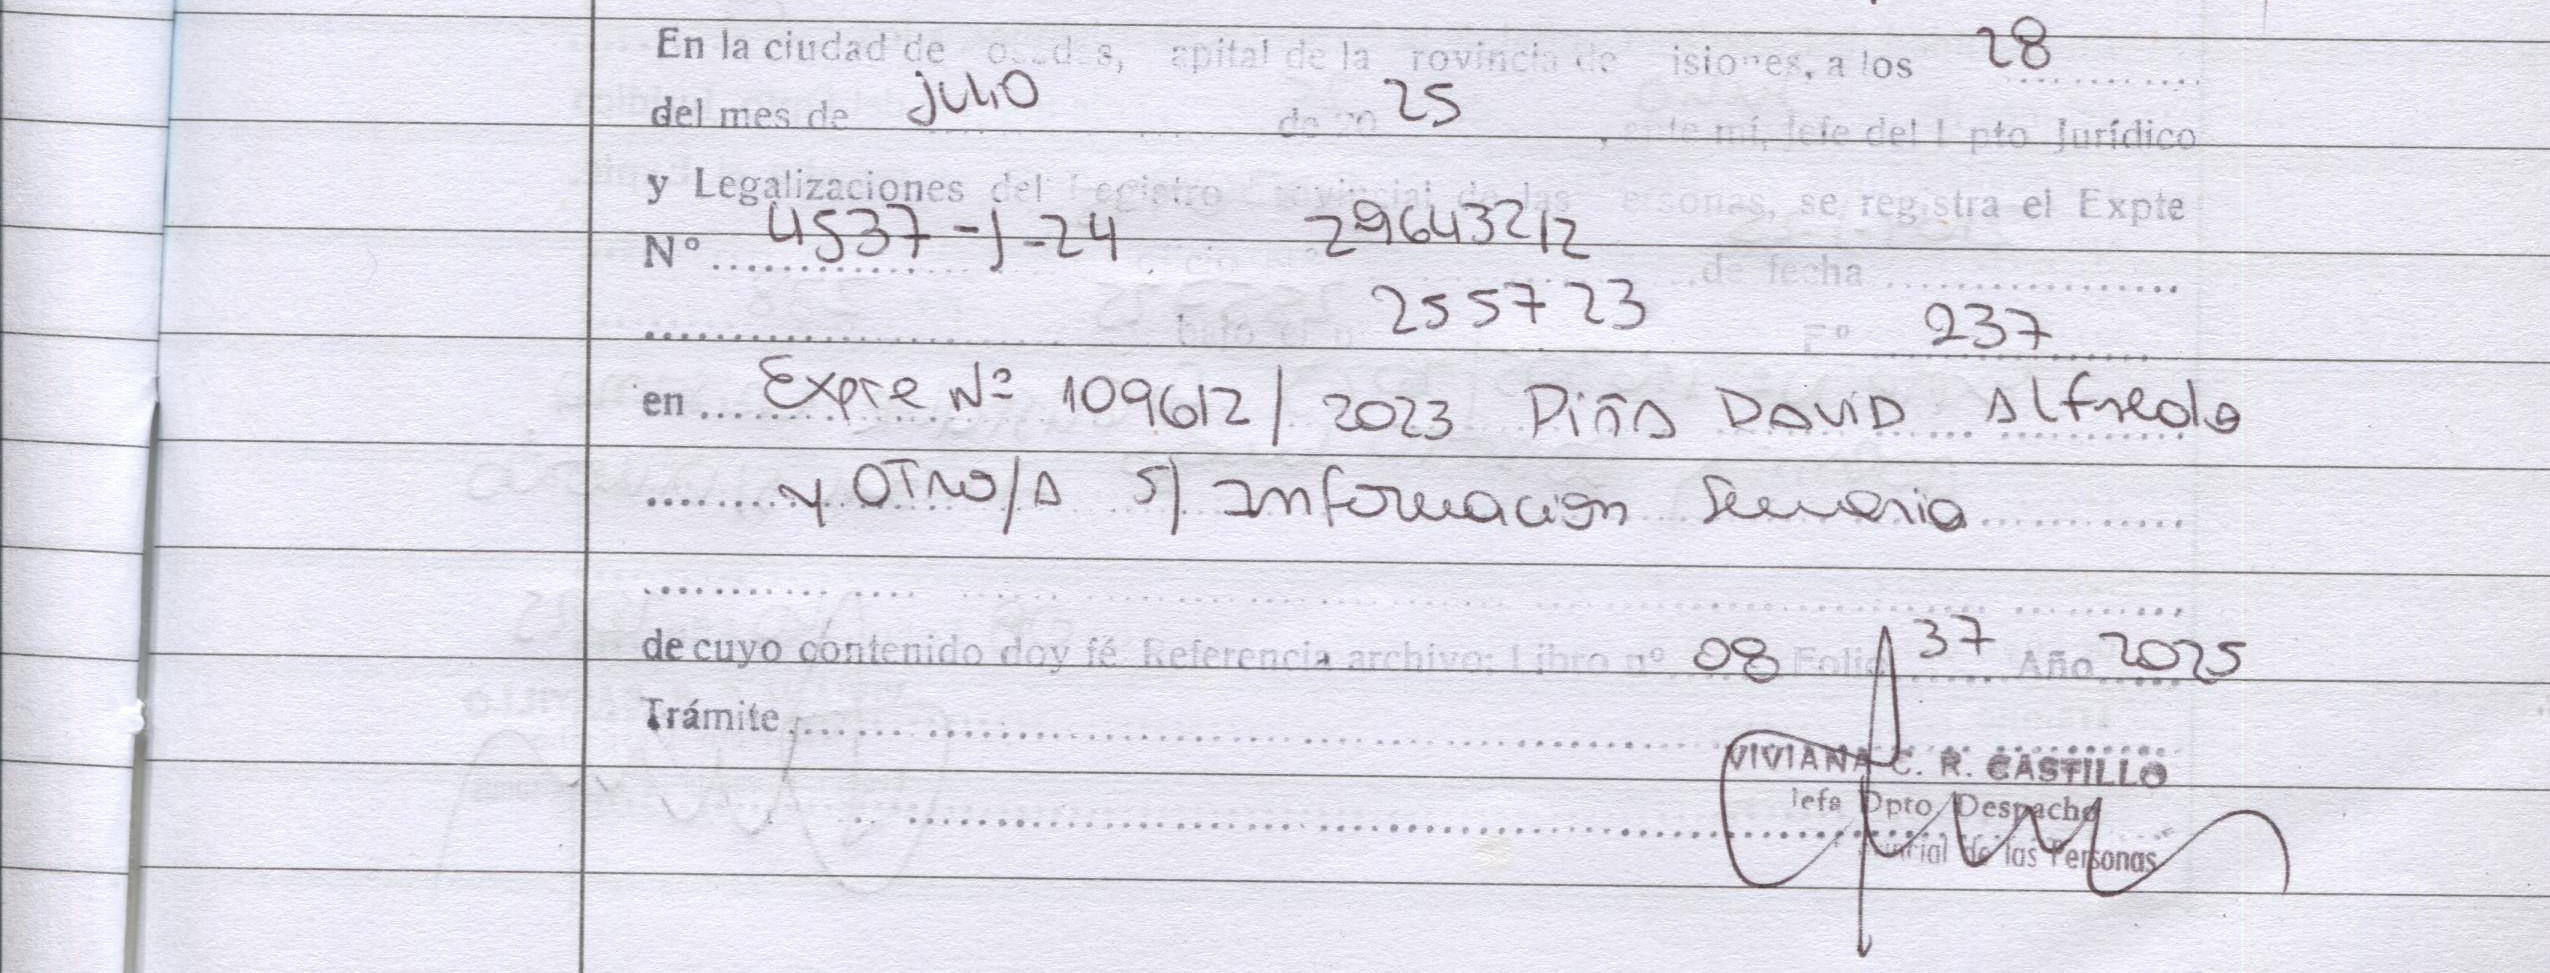 En la ciudad de osadas, apital de la rovincia de isiones, a los 28
del mes de julio de 20 25, ante mí, Jefe del D pto Jurídico
y Legalizaciones del Registro Provincial de las ersonas, se registra el Expte
Nº 4537-J-24 29643212 de fecha
bajo el n 255723 Fº 237
en Expte Nº 109612/2023 Piña DAVID Alfredo
y OTRO/A S/ Información Sumaria
de cuyo contenido doy fé Referencia archivo: Libro nº 08 Folio 37 Año 2025
Trámite
VIVIANA C. R. CASTILLO
Jefa Dpto Despacho
vincial de las Personas